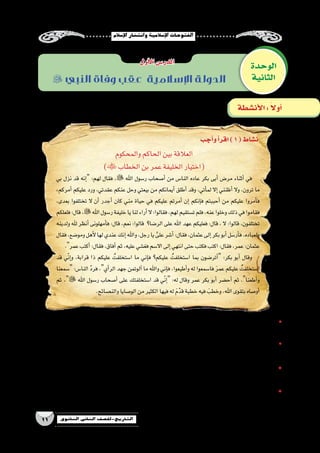 الفتوحات الإسلامية وانتشار الإسلام
الوحدة
الثانية
الدرس الأول
الدولة الإسلامية عقب وفاة النبي ﷺ
أولا : الأنشطة
نشاط (١) اقرأ وأجب
العلاقة بين الحاكم والمحكوم
(اختيار الخليفة عمر بن الخطاب ﷺ)
في أثناء مرض أبى بكر عاده الناس من أصحاب رسول الله ﷺ، فقال لهم: "إنه قد نزل بي
ما ترون، ولا أظنني إلا لمأتي، وقد أطلق أيمانكم من بيعتي وحل عنكم عقدتي، ورد عليكم أمركم،
فأمروا عليكم من أحببتم فإنكم إن أمرتم عليكم في حياة مني كان أجدر أن لا تختلفوا بعدي.
فقاموا في ذلك وخلوا عنه، فلم تستقيم لهم، فقالوا: لا أراء لنا يا خليفة رسول الله ﷺ، قال: فلعلكم
تختلفون، قالوا: لا، قال: فعليكم عهد الله على الرضا؟ قالوا: نعم، قال: فأمهلوني أنظر لله ولدينه
ولعباده، فأرسل أبو بكر إلى عثمان، فقال: أشر علىّ يا رجل، والله إنك عندي لها لأهل وموضع، فقال
عثمان: عمر، فقال: اكتب فكتب حتى انتهى إلى الاسم فغشي عليه، ثم أفاق، فقال: أكتب عمر".
وقال أبو بكر: "أترضون بما استخلفتُ عليكم؟ فإني ما استخلفتُ عليكم ذا قرابة، وإني قد
استخلفتُ عليكم عمرَ فاسمعوا له وأطيعوا، فإني والله ما ألوتمن جهد الرأي"، فردَّ الناس: "سمعنا
وأطعنا". ثم أحضر أبو بكر عمر وقال له: "إني قد استخلفتك على أصحاب رسول الله ﷺ"، ثم
أوصاه بتقوى الله، وخطبَ فيه خطبة قدَّم له فيها الكثير من الوصايا والنصائح.
التاريخ - للصف الثانى الثانوى
١١